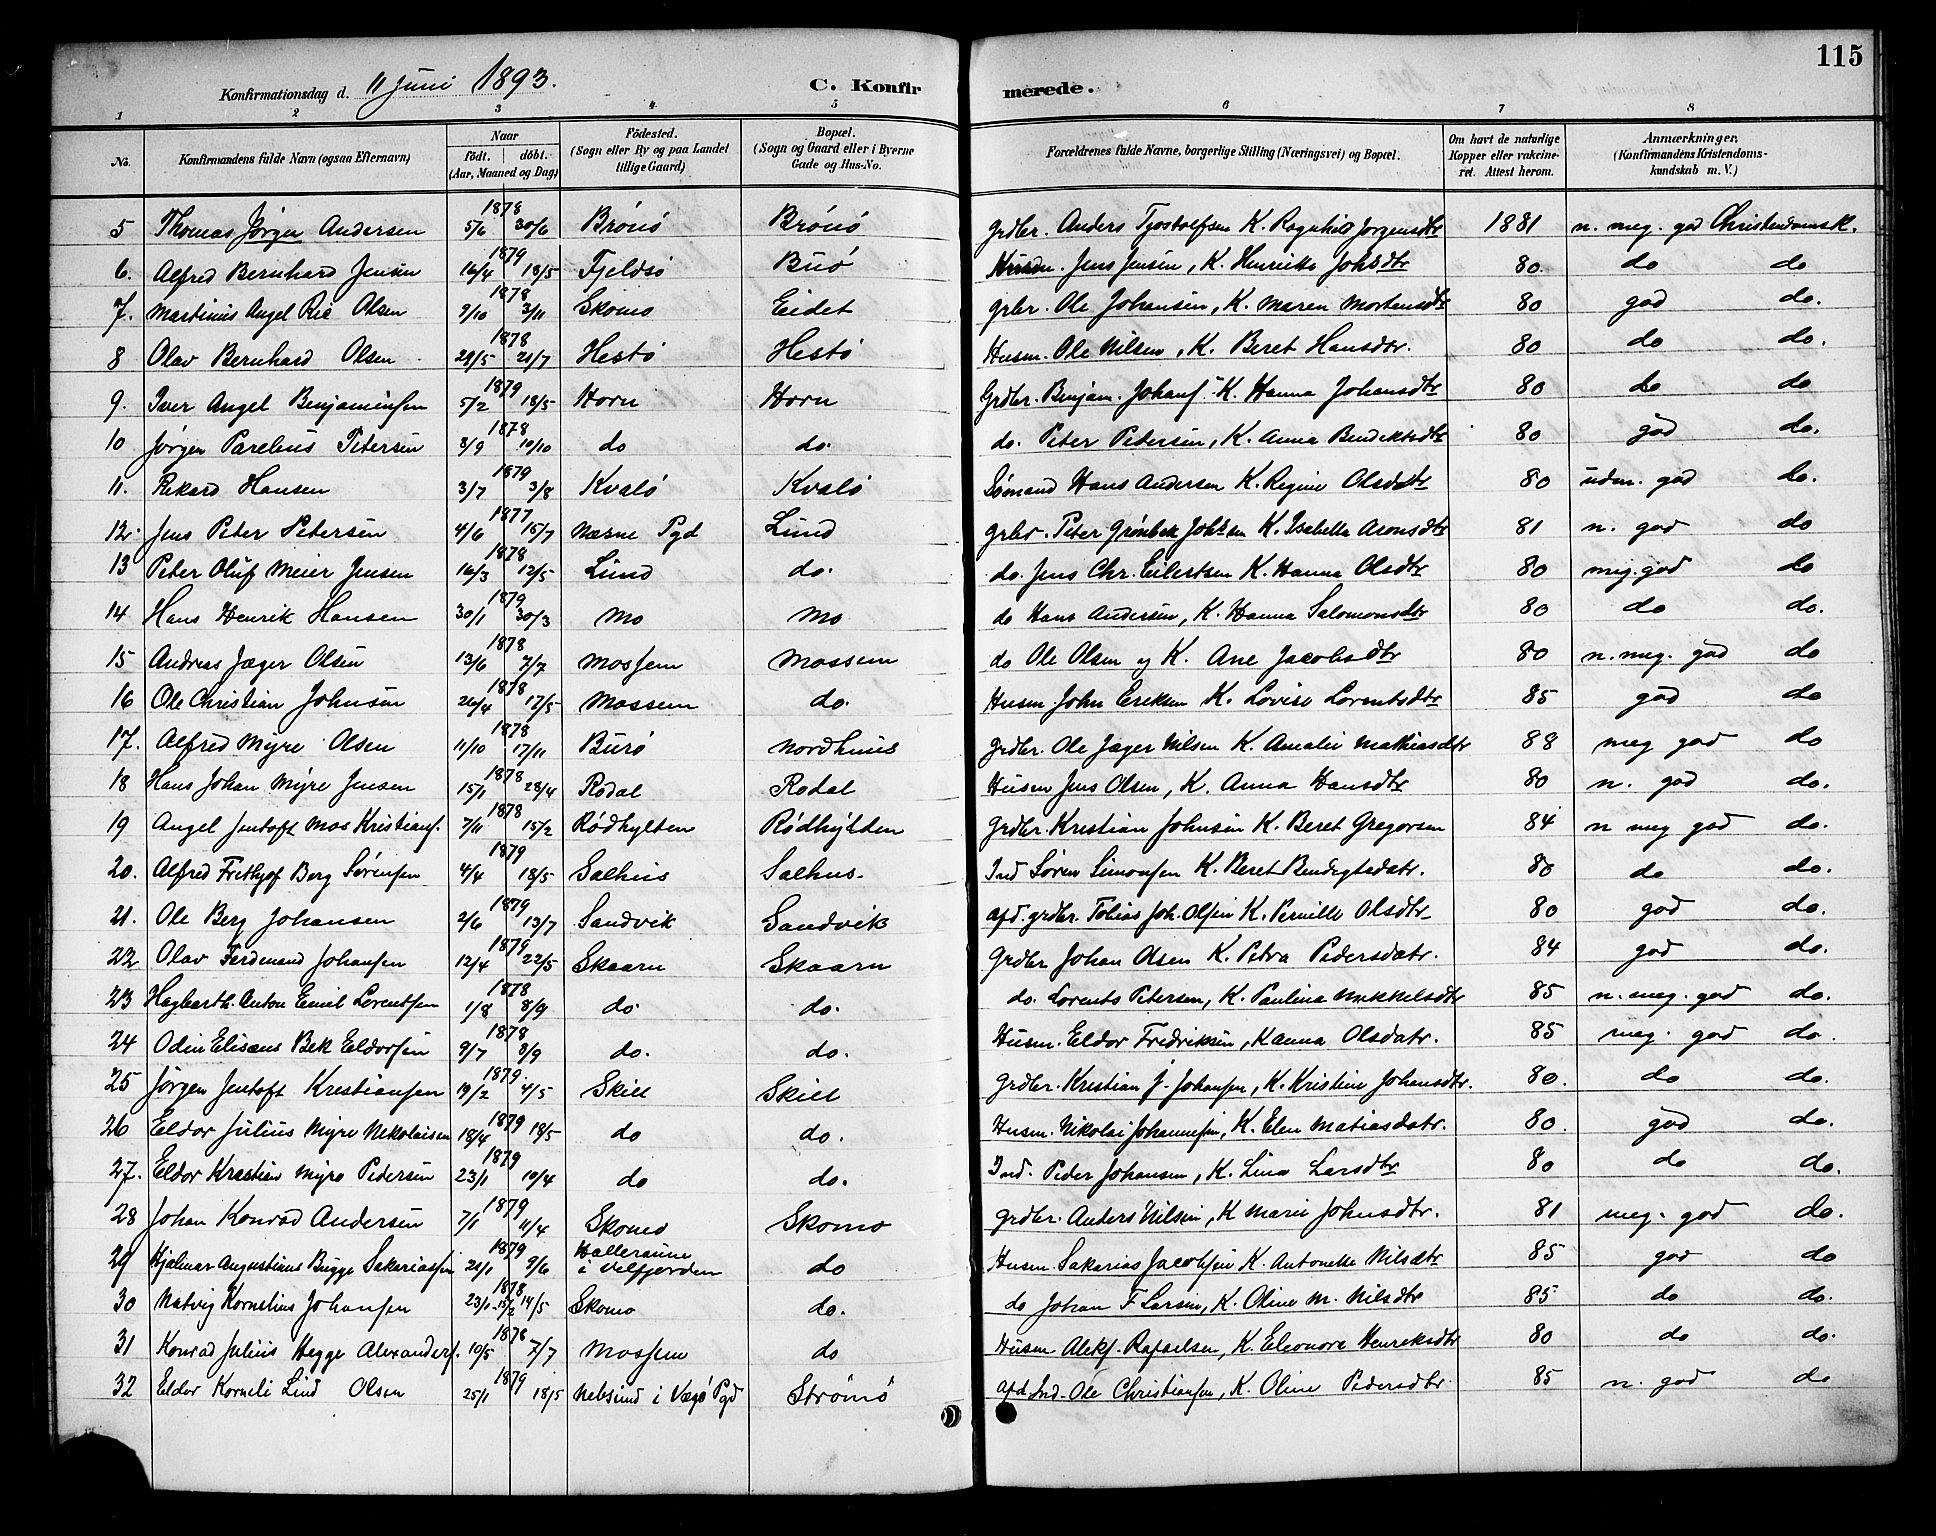 115
Konfirmationsdag d. 11 Juni 1893. C. Konfirmerede.
1 2 3 4 5 6 7 8
No. Konfirmandens fulde Navn (ogsaa Efternavn) Naar født. døbt. (Aar, Maaned og Dag) Fødested. (Sogn eller By og paa Landet tillige Gaard) Bopæl. (Sogn og Gaard eller i Byerne Gade og Hus-No. Forældrenes fulde Navne, borgerlige Stilling (Næringsvei) og Bopæl. Om havt de naturlige Kopper eller vakcineret. Attest herom. Anmærkninger, (Konfirmandens Kristendomskundskab m. V.)
5 Thomas Jørgen Andersen 1878 5/6 30/6 Brönö Brönö Grdbr. Anders Tjostolfsen K. Ragnhild Jørgensdtr 1881 n. meg. god Christendomsk.
6. Alfred Bernhard Jensen 1879 16/4 18/5 Fjeldsö Buö Jens Jensen, K. Henrikke Johsdtr 80. do do
7. Martinus Angel Olsen 1878 9/10 3/11 Skomo Eidet grbr. Ole Johansen, K. Maren Mortensdtr 80 god do.
8 Olav Bernhard Olsen 1878 29/5 21/7 Hestö Hestö Husm. Ole Nilsen, K. Beret Hansdtr. 80 do do.
9. Iver Angel Benjaminsen 1879 5/2 18/5 Horn Horn Grdbr. Benjam. Johans. K. Hanna Johansdtr 80 do do
10 Jørgen Parelius Petersen 1878 3/9 10/10 do do. do. Peter Petersen, K. Anna Bendiktsdtr 80 god do.
11. Rikard Hansen 1879 3/7 3/8 Kvalö Kvalö Sømand Hans Andersen K. Regine Olsdatr 80 udm. god do.
12. Jens Peter Petersen 1877 4/6 15/7 Næsne Pgd Lund grbr. Peter Grönbek Johsen K. Isabella Aronsdtr 81 n. god do
13 Peter Oluf Meier Jensen 1878 16/3 12/5 Lund do. do. Jens Chr. Eilertsen K. Hanna Olsdtr 80 meg. god do
14 Hans Henrik Hansen 1879 30/1 30/3 Mo Mo do Hans Andersen, K. Hanna Salomonsdtr 80 do do.
15 Andreas Jæger Olsen 1878 13/6 7/7 Mosjem Mossem do Ole Olsen og K. Ane Jacobsdtr 80 n. meg. god do
16 Ole Christian Johnsen 1878 26/4 12/5 Mossem do. Husm. John Eriksen K. Lovise Lorentsdtr 85 god do
17. Alfred Myre Olsen 1878 11/10 17/11 Burö Nordhuus Grdbr. Ole Jæger Nilsen K. Amalie Mathiasdtr 88 meg god do
18 Hans Johan Myre Jensen 1878 15/1 28/4 Rodal Rodal Husm Jens Olsen, K. Anna Hansdtr 80 n. god do.
19 Angel Jentoft Mos Kristians. 1878 7/11 15/2 Rødhylten Rødhylten Grdbr. Kristian Johnsen K. Beret Gregorsen 84 n meg god do.
20. Alfred Frithjof Berg Sørensen 1879 4/4 18/5 Salhus Salhus. Ind Søren Simonsen K. Beret Bendigtsdatr. 80 do do.
21. Ole Berg Johansen 1879 2/6 13/7 Sandvik Sandvik afd. grdbr. Tobias Joh. Olsen K. Pernille Olsdtr 80 god do.
22 Olav Ferdinand Johansen 1879 12/4 22/5 Skaarn Skaarn Grdbr Johan Olsen K. Petra Pedersdatr. 84 god do.
23 Hagbarth. Anton Emil Lorentsen 1878 1/8 8/9 do. do. do. Lorents Petersen, K. Paulina Mikkelsdtr 85 n. meg. god do.
24 Odin Elisæus Bek Eldorsen 1878 9/7 8/9 do. do. Husm. Eldor Fredriksen, K anna Olsdatr. 85 meg. god do.
25 Jørgen Jentoft Kristiansen 1879. 19/2 4/5 Skill Skill grdbr. Kristian J. Johansen, K. Kristine Johansdtr. 80. do do.
26 Eldor Julius Myre Nikolaisen 1879 18/4 18/5 do do. Husm. Nikolai Johannesen, K. Elen Matiasdatr. 80. god do.
27. Eldor Kristian Myre Pedersen 1879 23/1 10/4 do do. Ind. Peder Johansen, K. Lina Larsdtr 80 do do.
28 Johan Konrad Andersen 1879 7/1 11/4 Skomo Skomo grdbr. Anders Nilsen, K Marie Johnsdtr. 81 meg. god do.
29 Hjalmar Augustinus Bugge Sakariassen 1879 21/1 9/6 i Velfjorden do Husm. Sakarias Jacobsen K. Antonette Nilsdtr 85 god do
30 Natvig Kornelius Johansen 1878 14/5 Skomo do. do Johan F Larsen, K. Oline M. Nilsdtr 85 do do.
31 Konrad Julius Hegge Alexanders. 1878 10/5 7/7 Mosjem do Husm Aleks. Rafaelsen, K. Eleonora Henriksdtr 80 do do.
32 Eldor Korneli Lind Olsen 1879 25/1 18/5 Nebsund i Vægö Pgd Strömö afd Ind. Ole Christiansen, K. Oline Pedersdtr. 85 n. god do